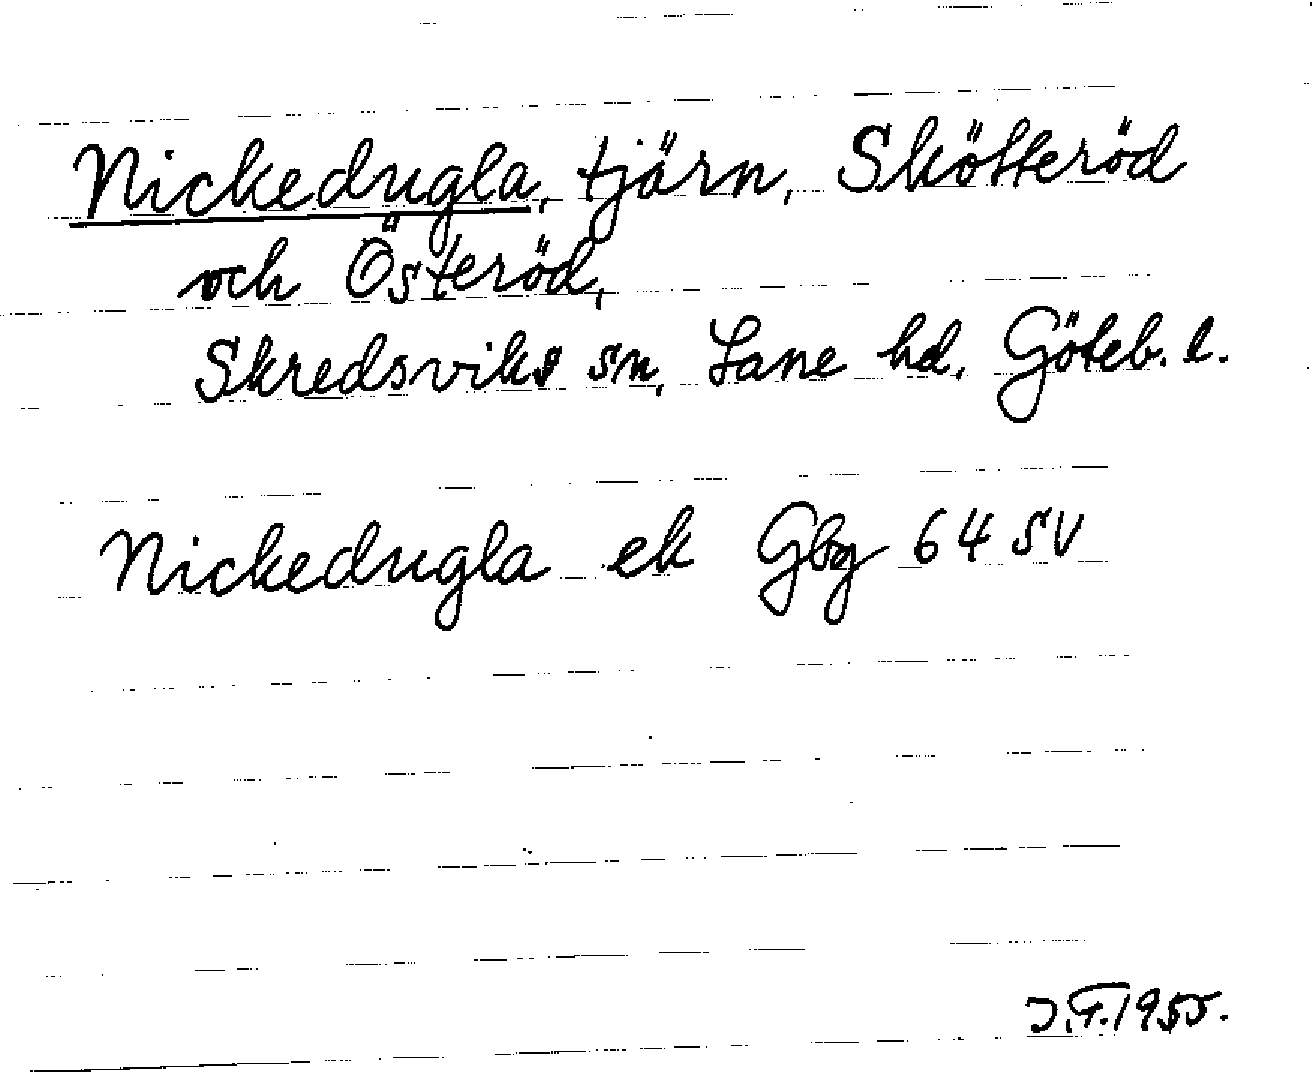 Nickedugla, tjärn, Skötteröd
och Österöd,
Skredsviks sn, Lane hd, Göteb. l.
Nickedugla ek Gbg 64 SV
J.F. 1955.